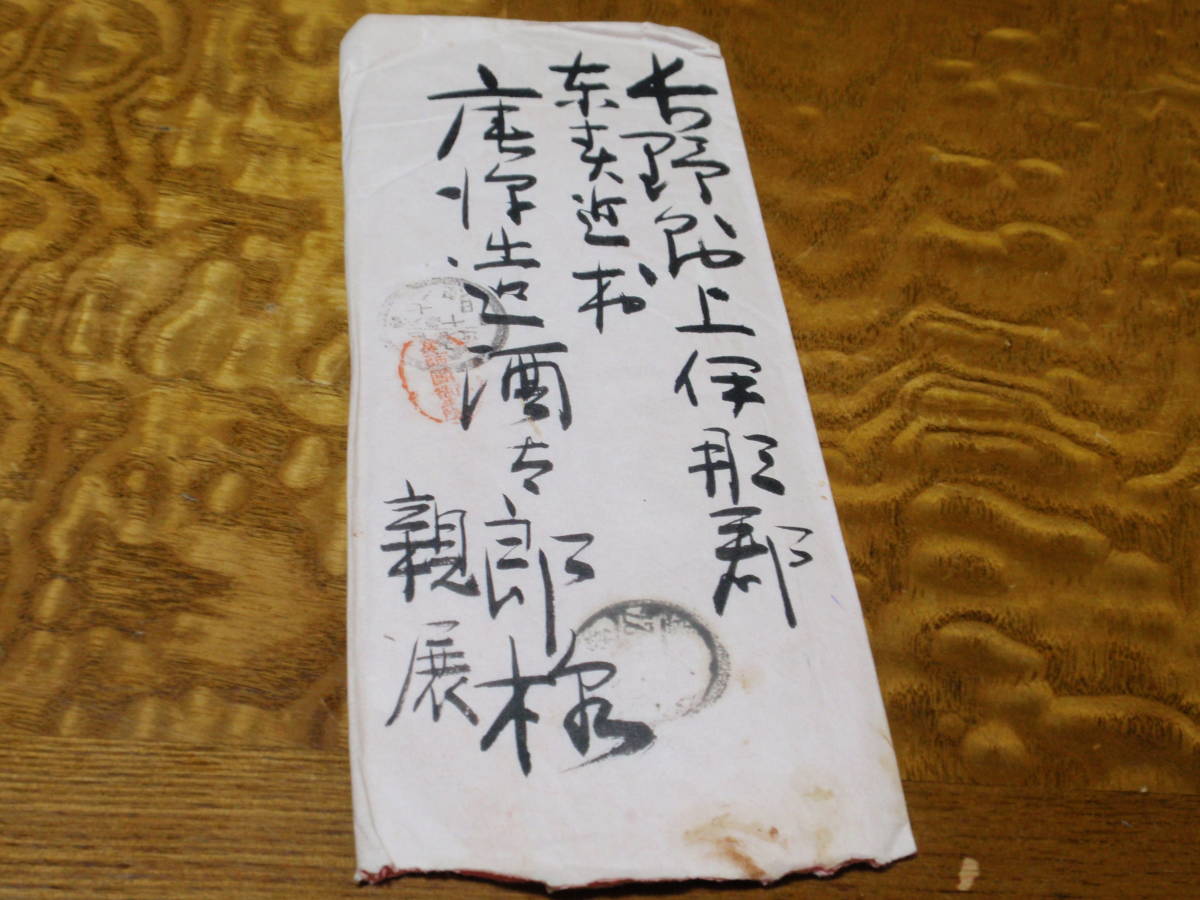 長野縣上伊那郡
東春近村
唐澤造酒太郎様
親展